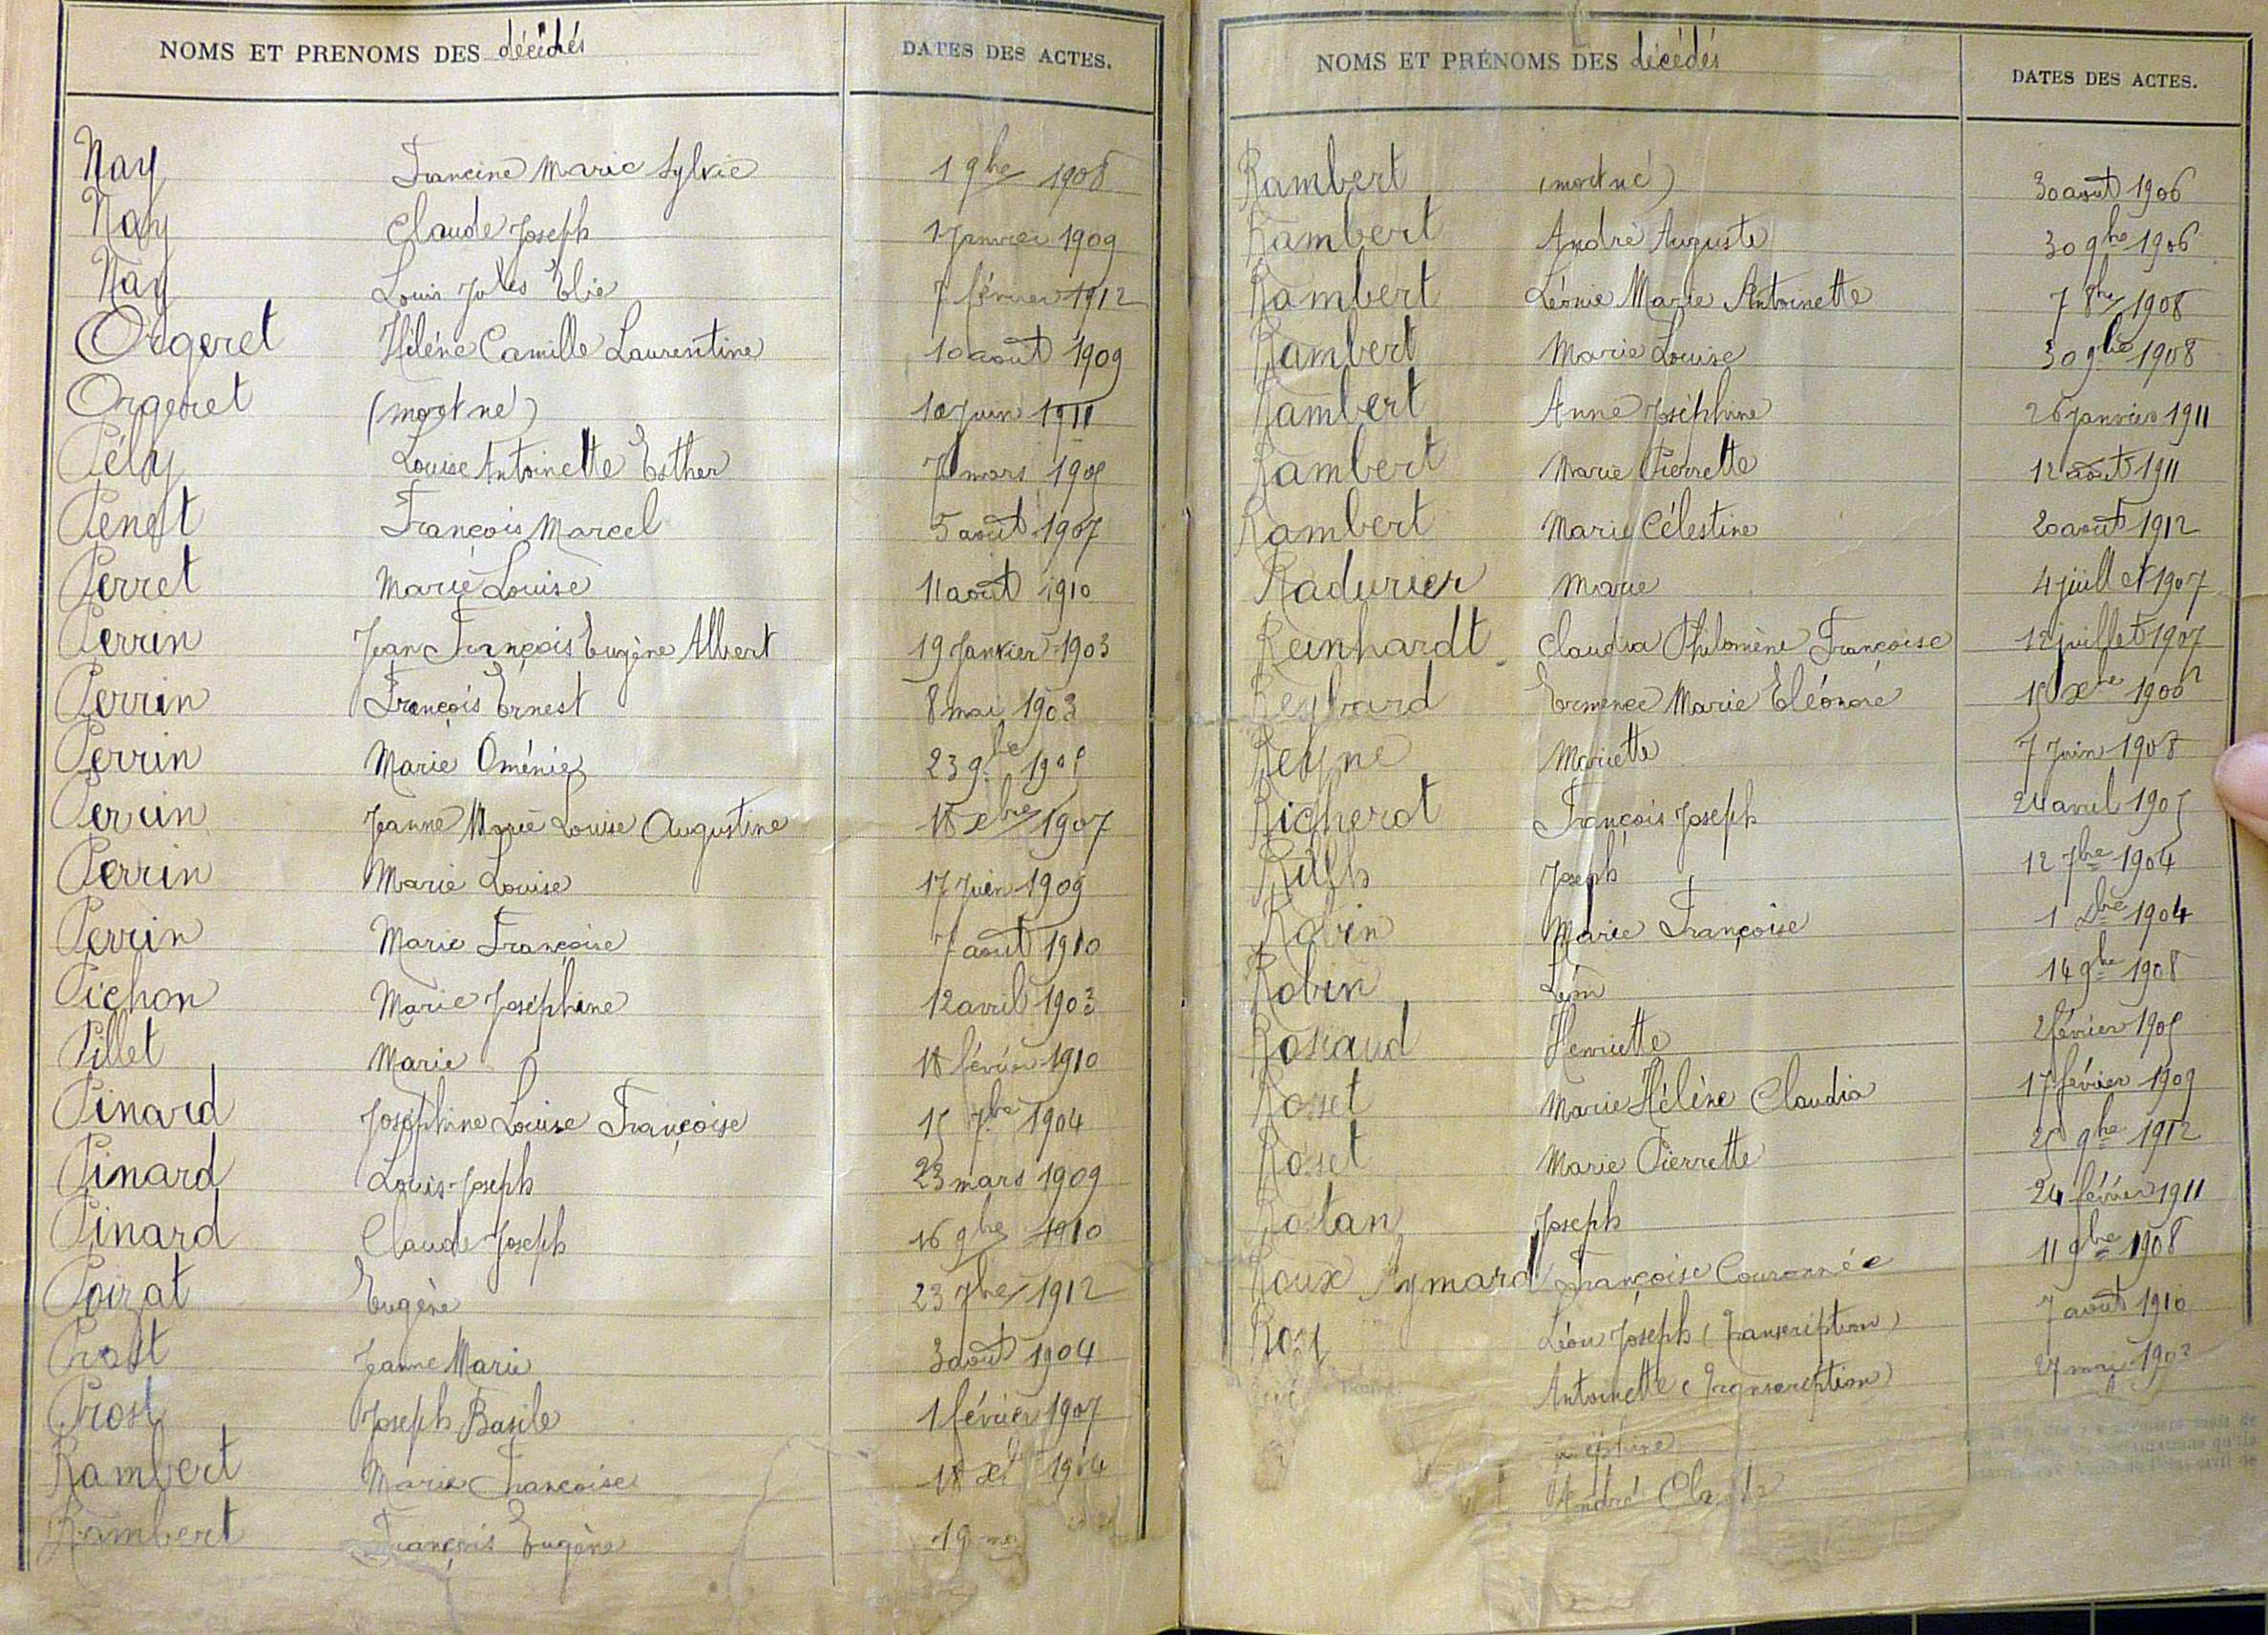 NOMS ET PRENOMS DES décédés DATES DES ACTES.
Nay Francine Marie Sylvie 1 9bre 1908
Nay Claude Joseph 1 Janvier 1909
Nay Louis Jules Elie 7 février 1912
Orgeret Hélène Camille Laurentine 10 août 1909
Orgeret (mort né) 10 Juin 1911
Pély Louise Antoinette Esther 7 mars 1905
Penet François Marcel 5 août 1907
Perret Marie Louise 11 août 1910
Perrin Jean François Eugène Albert 19 Janvier 1903
Perrin François Ernest 8 mai 1903
Perrin Marie Oménie 23 9bre 1905
Perrin Jeanne Marie Louise Augustine 18 xbre 1907
Perrin Marie Louise 17 Juin 1909
Perrin Marie Françoise 7 août 1910
Pichon Marie Joséphine 12 avril 1903
Pillet Marie 18 février 1910
Pinard Joséphine Louise Françoise 15 7bre 1904
Pinard Louis-Joseph 23 mars 1909
Pinard Claude Joseph 16 9bre 1910
Poizat Eugène 23 7bre 1912
Prost Jeanne Marie 3 août 1904
Prost Joseph Basile 1 février 1907
Rambert Marie Françoise 18 xbre 1904
Rambert François Eugène 19
NOMS ET PRÉNOMS DES décédés DATES DES ACTES.
Rambert (mort né) 30 août 1906
Rambert André Auguste 30 9bre 1906
Rambert Léonie Marie Antoinette 7 8bre 1908
Rambert Marie Louise 30 9bre 1908
Rambert Anne Joséphine 26 janvier 1911
Rambert Marie Pierrette 12 août 1911
Rambert Marie Célestine 20 août 1912
Radurier Marie 4 juillet 1907
Reinhardt Claudia Philomène Françoise 12 juillet 1907
Reybard Ermence Marie Eléonore 15 xbre
Reyne Mariette 7 Juin 1908
Richerot François Joseph 24 avril 1905
Joseph 12 7bre 1904
Robin Marie Françoise 1 xbre 1904
Robin Léon 14 9bre 1908
Rosiaud Henriette 2 février 1905
Rosset Marie Hélène Claudia 17 février 1909
Roset Marie Pierrette 25 9bre 1912
Rostan Joseph 24 février 1911
Roux Aymard Françoise Couronnée 11 9bre 1908
Roy Léon Joseph (Transcription) 7 août 1910
Antoinette (Transcription) 27 mai 1903
André